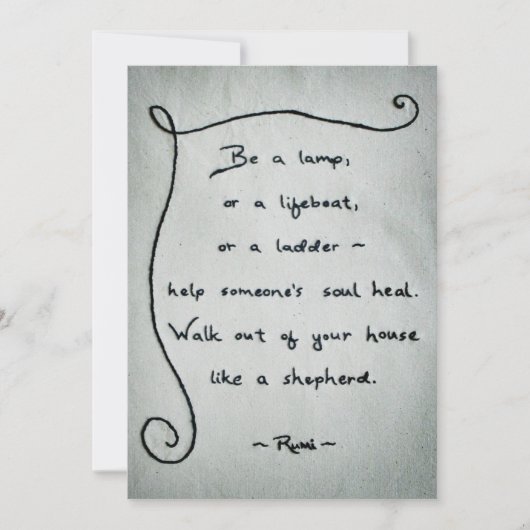 Be a lamp,
or a lifeboat,
or a ladder ~
help someone's soul heal.
Walk out of your house
like a shepherd.
~ Rumi ~